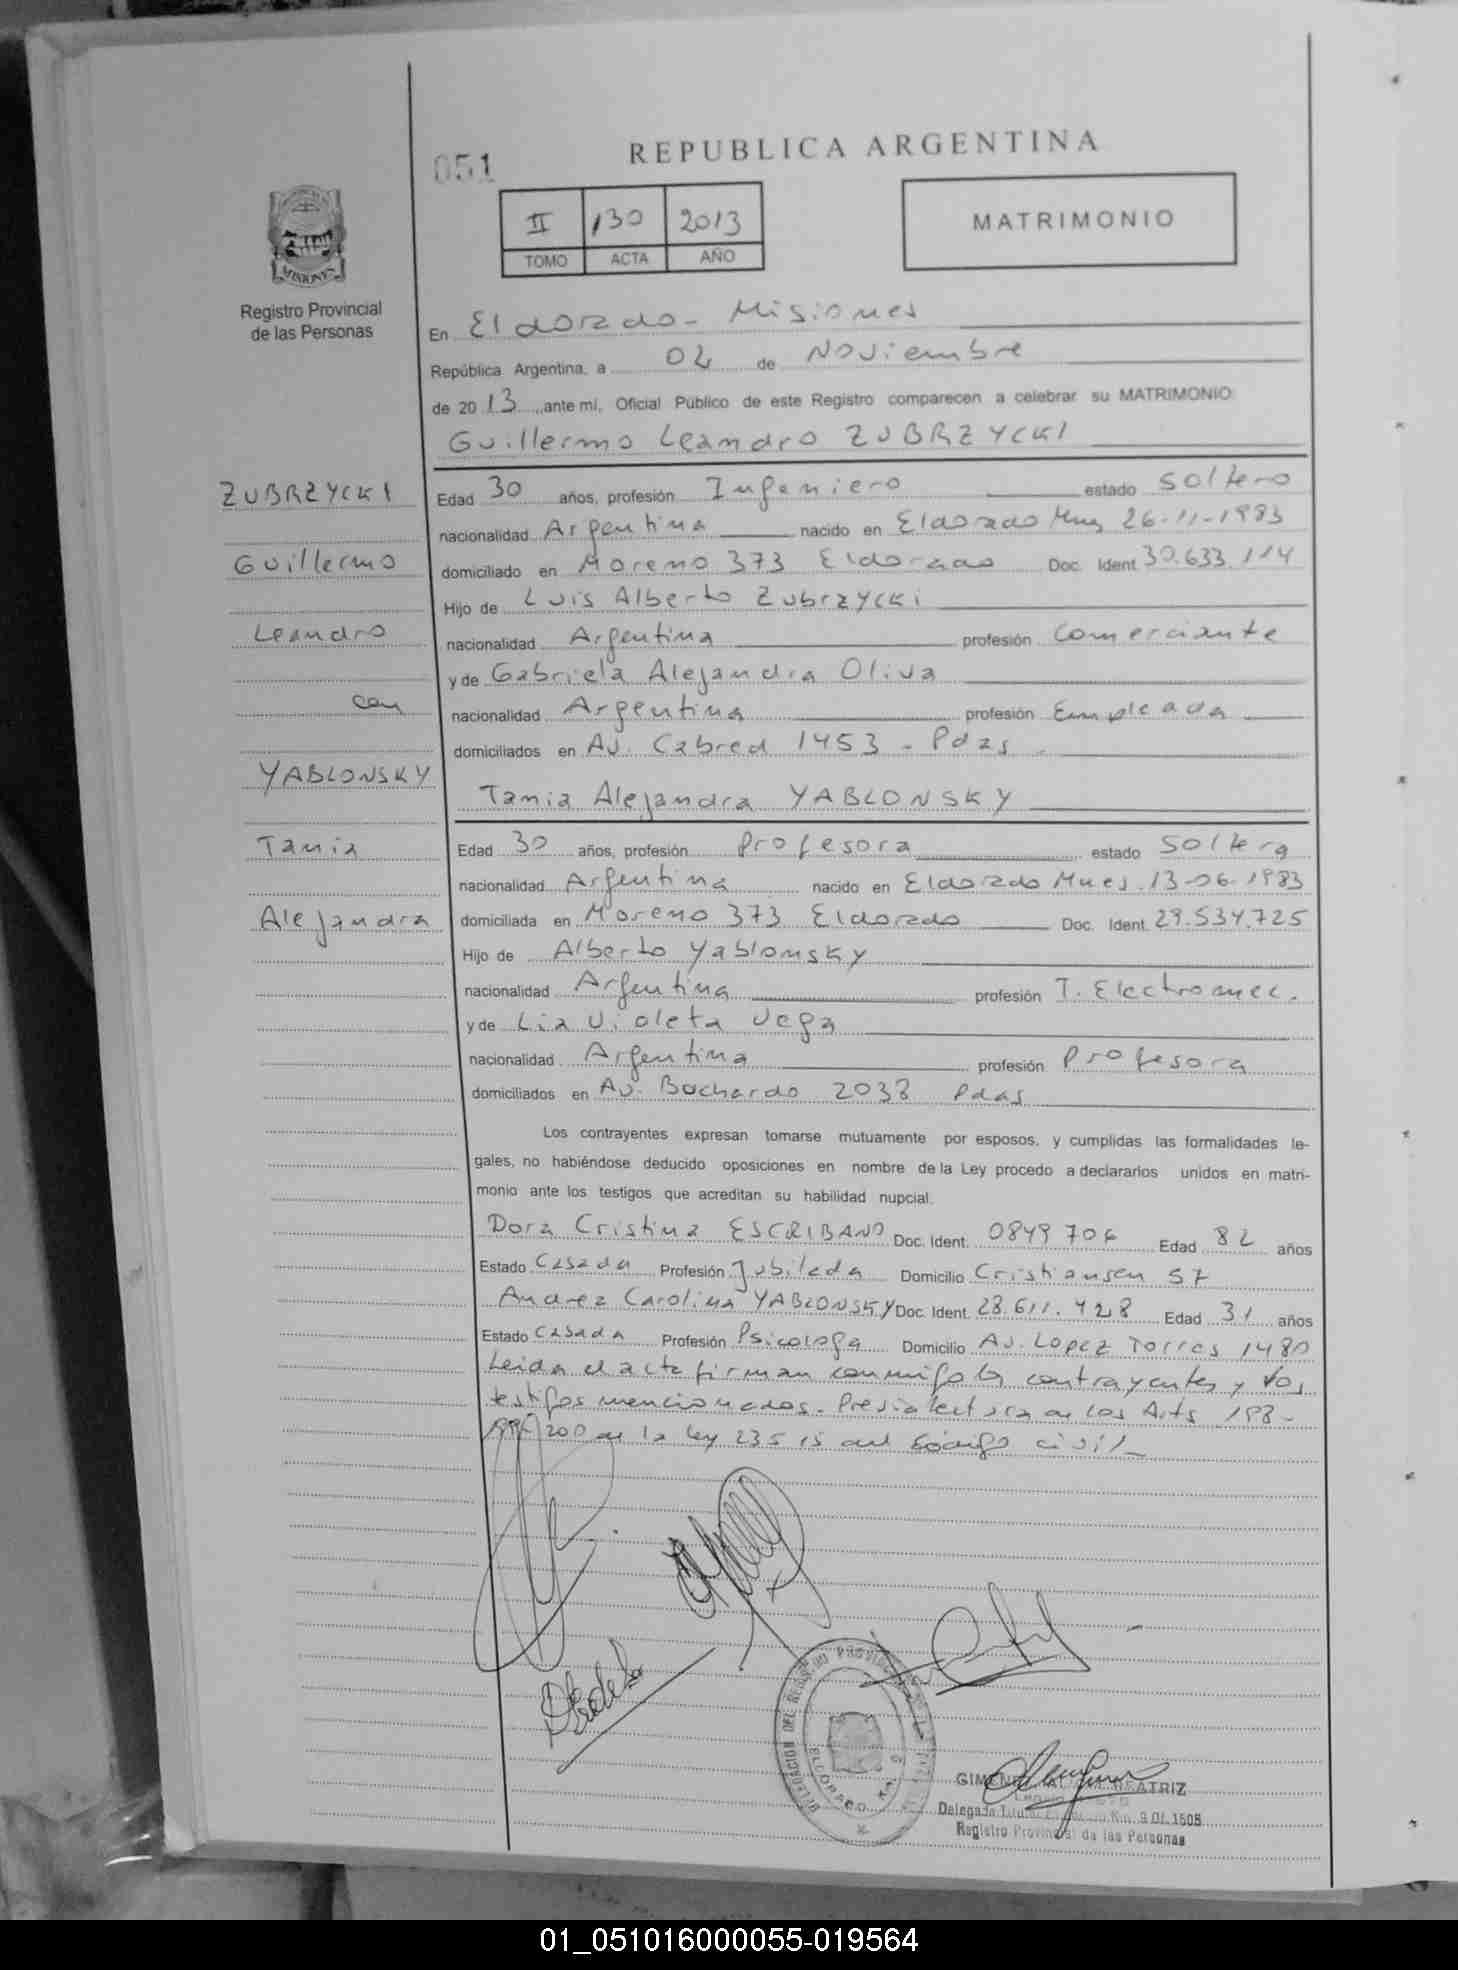 051
REPUBLICA ARGENTINA
II 130 2013
TOMO ACTA AÑO
MATRIMONIO
MISIONES
Registro Provincial
de las Personas
En Eldorado - Misiones
República Argentina, a 02 de Noviembre
de 2013, ante mí, Oficial Público de este Registro comparecen a celebrar su MATRIMONIO:
Guillermo Leandro ZUBRZYCKI
ZUBRZYCKI
Guillermo
Leandro
con
YABLONSKY
Tania
Alejandra
Edad 30 años, profesión Ingeniero estado soltero
nacionalidad Argentina nacido en Eldorado 26-11-1983
domiciliado en Moreno 373 Eldorado Doc. Ident. 30.633.114
Hijo de Luis Alberto Zubrzycki
nacionalidad Argentina profesión Comerciante
y de Gabriela Alejandra Oliva
nacionalidad Argentina profesión Empleada
domiciliados en Av. Cabred 1453 - Pdas
Tania Alejandra YABLONSKY
Edad 30 años, profesión Profesora estado soltera
nacionalidad Argentina nacido en Eldorado Mnes. 13-06-1983
domiciliada en Moreno 373 Eldorado Doc. Ident. 29.534.725
Hijo de Alberto Yablonsky
nacionalidad Argentina profesión T. Electromec.
y de Lia Violeta Vega
nacionalidad Argentina profesión Profesora
domiciliados en Av. Buchardo 2038 Pdas
Los contrayentes expresan tomarse mutuamente por esposos, y cumplidas las formalidades le-
gales, no habiéndose deducido oposiciones en nombre de la Ley procedo a declararlos unidos en matri-
monio ante los testigos que acreditan su habilidad nupcial.
Dora Cristina ESCRIBANO Doc. Ident. 0849706 Edad 82 años
Estado Casada Profesión Jubilada Domicilio Cristiansen 57
Andrea Carolina YABLONSKY Doc. Ident. 28.611.428 Edad 31 años
Estado Casada Profesión Psicologa Domicilio Av. Lopez Torres 1480
Leida el acta firman conmigo los contrayentes y los
testigos mencionados. Previa lectura de los Arts 198-
199/200 de la Ley 23515 del Código civil
DELEGACION DEL REGISTRO PROVINCIAL DE LAS
ELDORADO KM. 9
BEATRIZ
Delegada Titular Km. 9 Of. 1505
Registro Provincial de las Personas
01_051016000055-019564